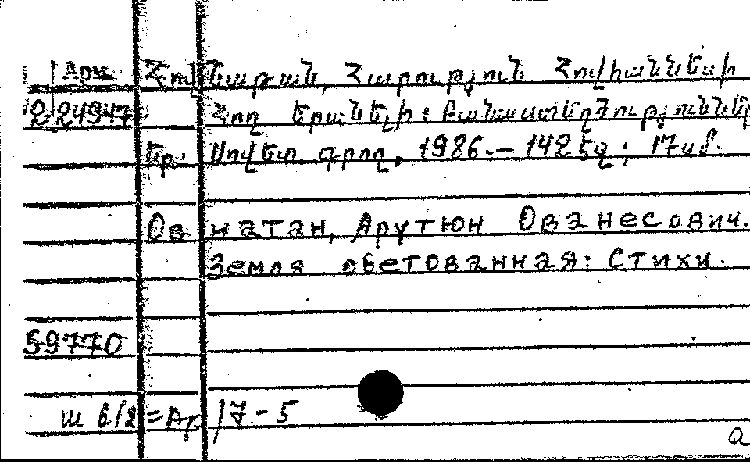 Арм. Հով նաթան, Հարություն Հովհաննեսի
224947 Հող երանելի: Բանաստեղծություններ
Եր. Սովետ. գրող, 1986.— 142 էջ; 17 սմ.
Ов натан, Арутюн Ованесович.
Земля обетованная: Стихи.
59770
17-5